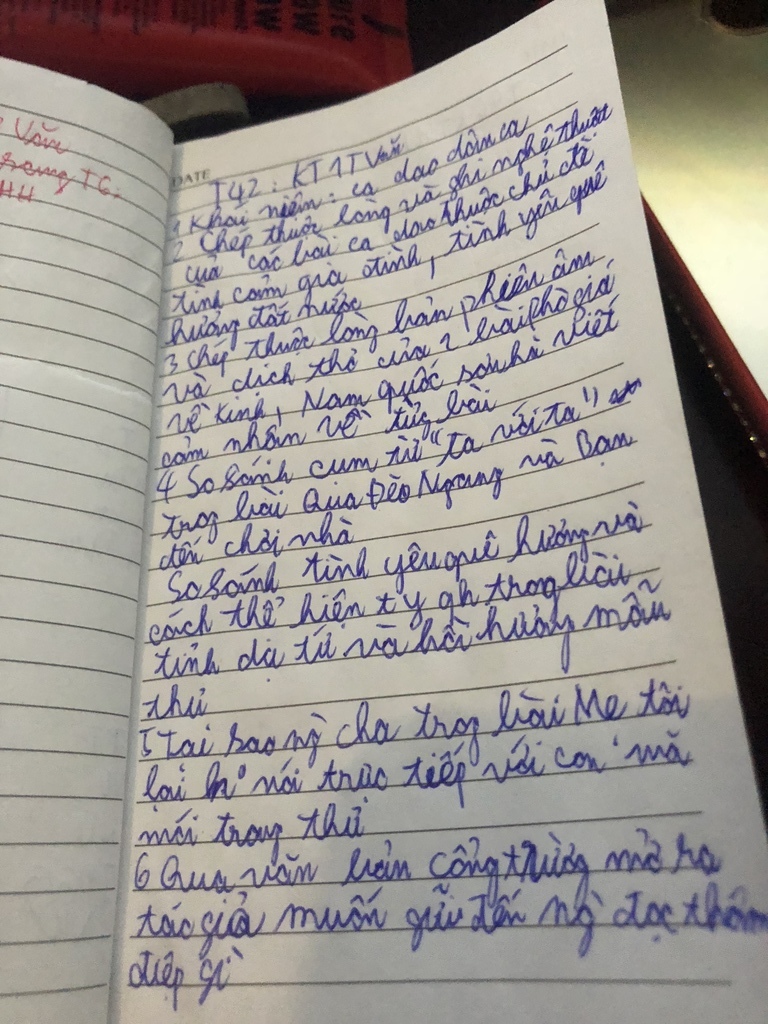 ure
low
ow
Văn
sang T6.
HH
DATE
T42 : KT 1T Văn
1 Khái niệm : ca dao dân ca
2 Chép thuộc lòng và ghi nghệ thuật
của các bài ca dao thuộc chủ đề
tình cảm gia đình, tình yêu quê
hương đất nước
3 Chép thuộc lòng bản phiên âm
và dịch thơ của 2 bài Phò giá
về kinh, Nam quốc sơn hà viết
cảm nhận về từg bài
4 So sánh cụm từ "ta với ta"
trog bài Qua Đèo Ngang và Bạn
đến chơi nhà
So sánh tình yêu quê hương và
cách thể hiện t y qh trog bài
tĩnh dạ tứ và hồi hương mẫu
thư
5 Tại sao ng` cha trog bài Mẹ tôi
lại ko nói trực tiếp với con mà
nói trong thư
6 Qua văn bản cổng trường mở ra
tác giả muốn gửi đến ng` đọc thôm
điệp gì